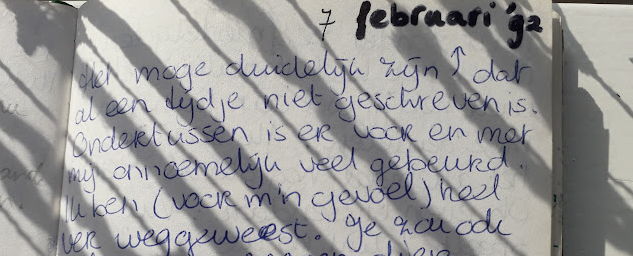 7 februari '92
Het moge duidelijk zijn ↑ dat
al een tijdje niet geschreven is.
Ondertussen is er voor en met
mij onnoemelijk veel gebeurd.
Ik ben (voor m'n gevoel) heel
ver weggeweest. Je zou ook